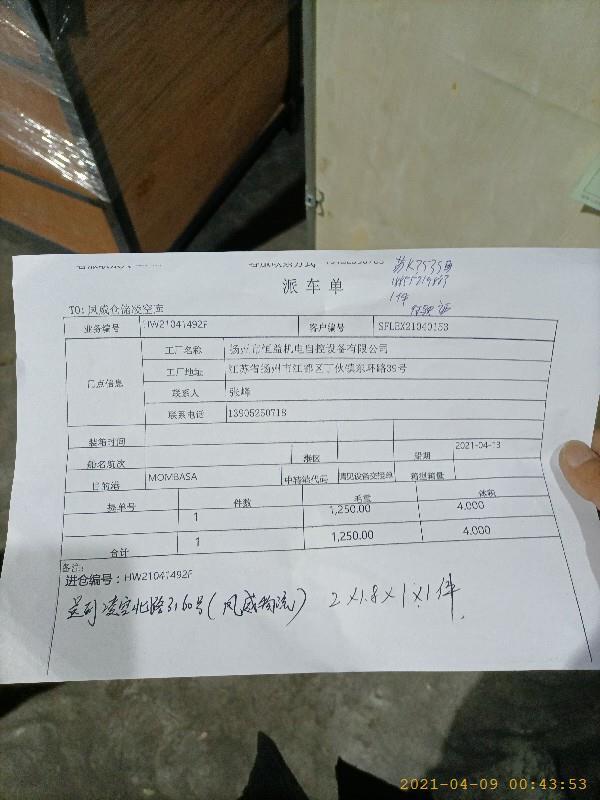 派车单
1件
TO: 凤威仓储凌空库
业务编号 HW21041492F 客户编号 SFLBX21040153
门点信息
工厂名称 扬州市恒益机电自控设备有限公司
工厂地址 江苏省扬州市江都区丁伙镇东环路39号
联系人 张峰
联系电话 13905250718
装箱时间
船名航次 港区 船期 2021-04-13
目的港 MOMBASA 中转港代码 请见设备交接单 箱型箱量
提单号 件数 毛重 体积
1 1,250.00 4.000
合计 1 1,250.00 4.000
备注:
进仓编号：HW21041492F
送到凌空北路3160号(凤威物流) 2×1.8×1×1件
2021-04-09 00:43:53